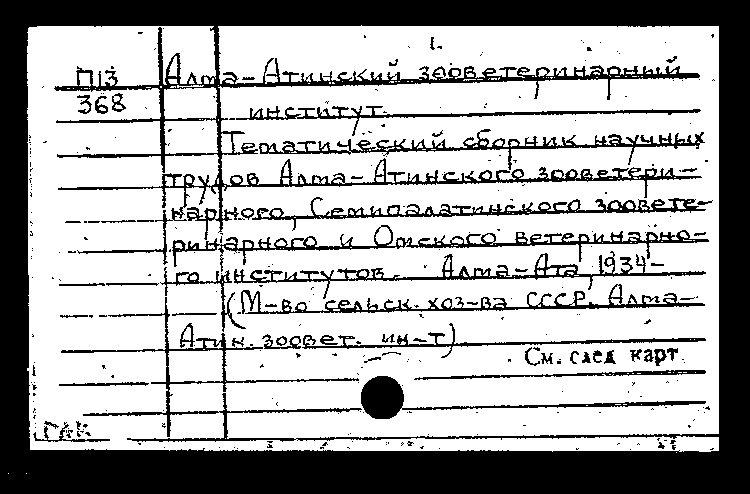 1.
П13 Алма-Атинский зооветеринарный
368 институт.
Тематический сборник научных
трудов Алма-Атинского зооветери-
нарного, Семипалатинского зоовете-
ринарного и Омского ветеринарно-
го институтов. Алма-Ата, 1934-
(М-во сельск. хоз-ва СССР. Алма-
Атин. зоовет. ин-т)
См. след карт.